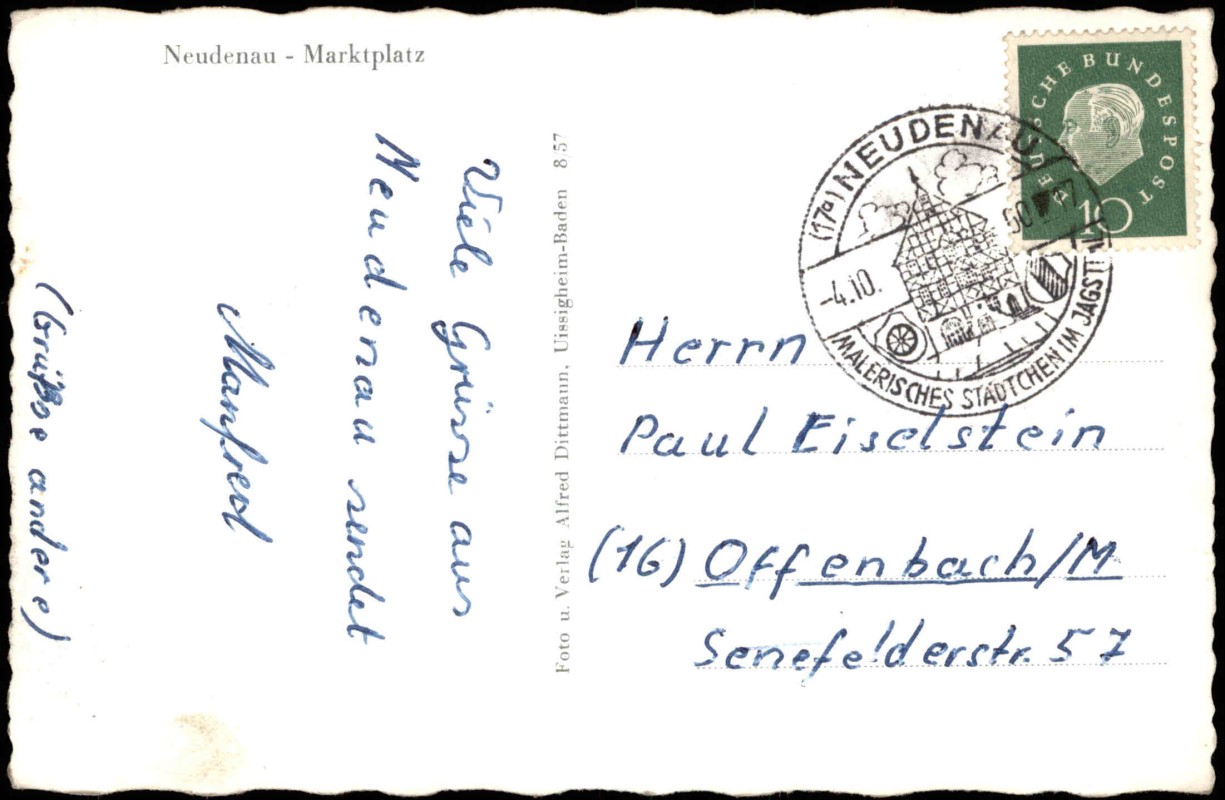 Neudenau - Marktplatz
Viele Grüsse aus
Neudenau sendet
Manfred
(Grüße andere)
Foto u. Verlag Alfred Dittmann, Uissigheim-Baden 8,57
DEUTSCHE BUNDESPOST
10
(17a) NEUDENAU
-4.10.
MALERISCHES STÄDTCHEN IM JAGSTTAL
Herrn
Paul Eiselstein
(16) Offenbach/M
Senefelderstr. 57